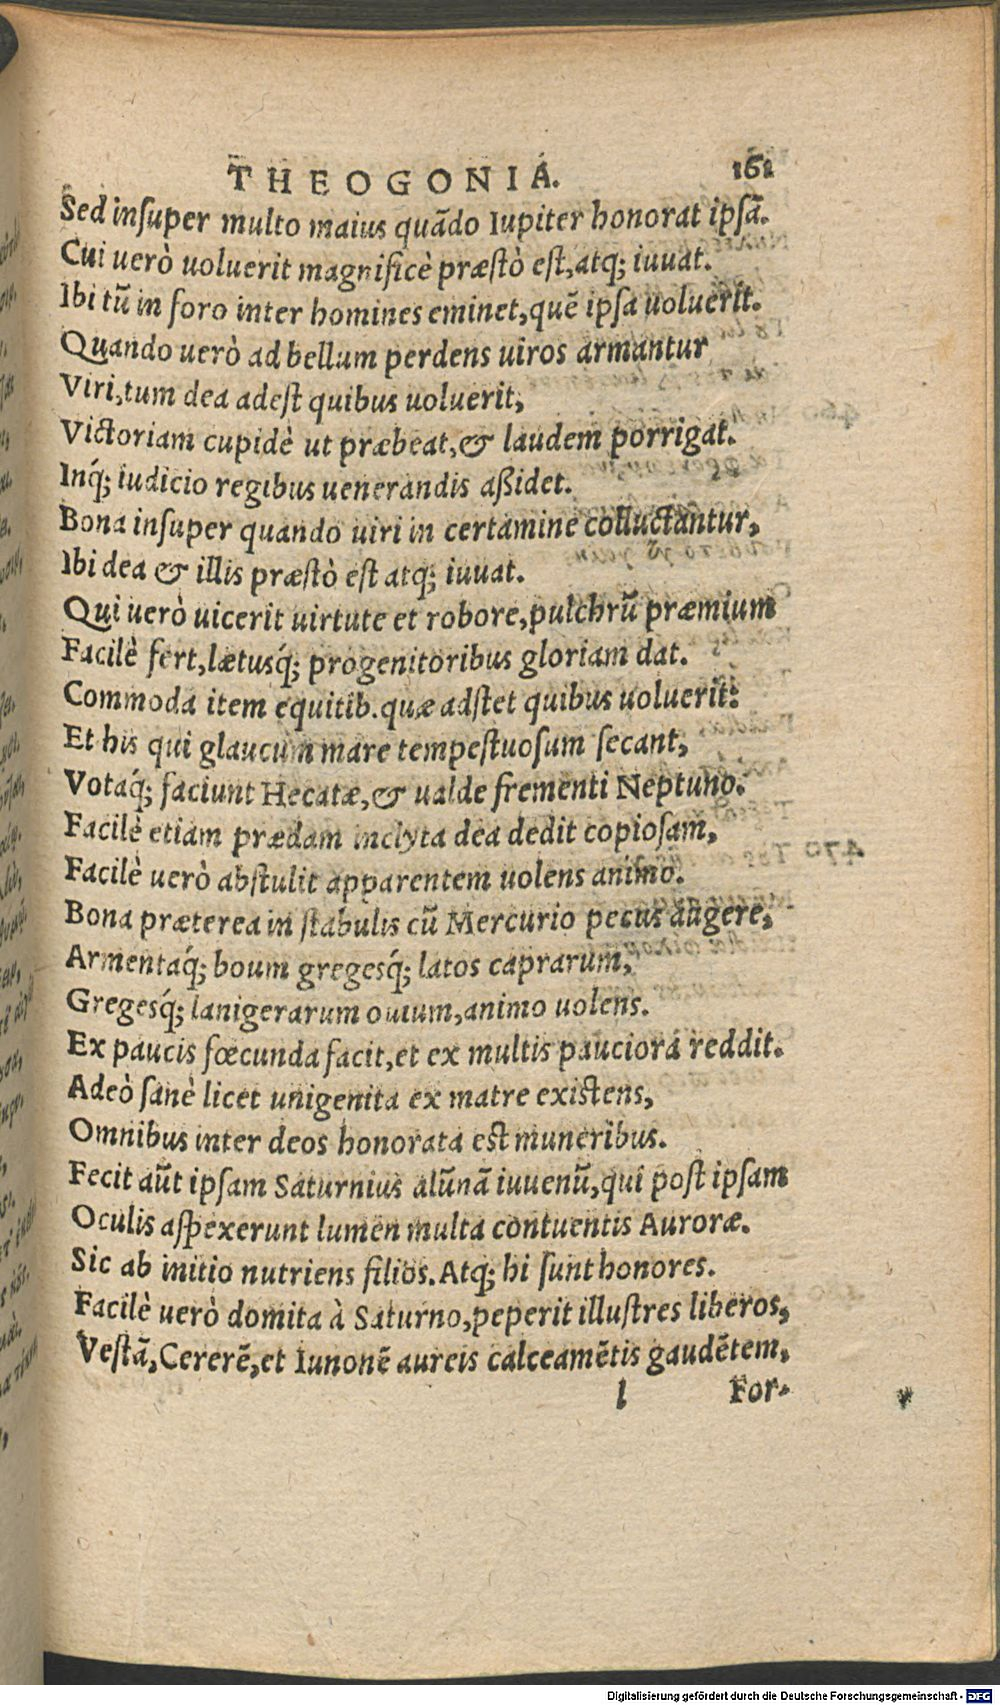 THEOGONIA. 161
Sed inſuper multo maius quãdo Iupiter honorat ipſã.
Cui uerò uoluerit magnificè præſtò eſt, atq; iuuat.
Ibi tũ in foro inter homines eminet, quẽ ipſa uoluerit.
Quando uerò ad bellum perdens uiros armantur
Viri, tum dea adeſt quibus uoluerit,
Victoriam cupidè ut præbeat, & laudem porrigat.
Inq́; iudicio regibus uenerandis aßidet.
Bona inſuper quando uiri in certamine colluctantur,
Ibi dea & illis præſtò eſt atq; iuuat.
Qui uerò uicerit uirtute et robore, pulchrũ præmium
Facilè fert, lætusq́; progenitoribus gloriam dat.
Commoda item equitib. quæ adſtet quibus uoluerit:
Et his qui glaucum mare tempeſtuoſum ſecant,
Votaq́; faciunt Hecatæ, & ualde frementi Neptuno.
Facilè etiam prædam inclyta dea dedit copioſam,
Facilè uerò abſtulit apparentem uolens animo.
Bona præterea in ſtabulis cũ Mercurio pecus augere,
Armentaq́; boum gregesq́; latos caprarum,
Gregesq́; lanigerarum ouium, animo uolens.
Ex paucis fœcunda facit, et ex multis pauciora reddit.
Adeò ſanè licet unigenita ex matre exiſtens,
Omnibus inter deos honorata eſt muneribus.
Fecit aũt ipſam Saturnius alũnã iuuenũ, qui poſt ipſam
Oculis aſpexerunt lumen multa contuentis Auroræ.
Sic ab initio nutriens filios. Atq; hi ſunt honores.
Facilè uerò domita à Saturno, peperit illuſtres liberos,
Veſtã, Cererẽ, et Iunonẽ aureis calceamẽtis gaudẽtem,
l For-
Digitalisierung gefördert durch die Deutsche Forschungsgemeinschaft - DFG